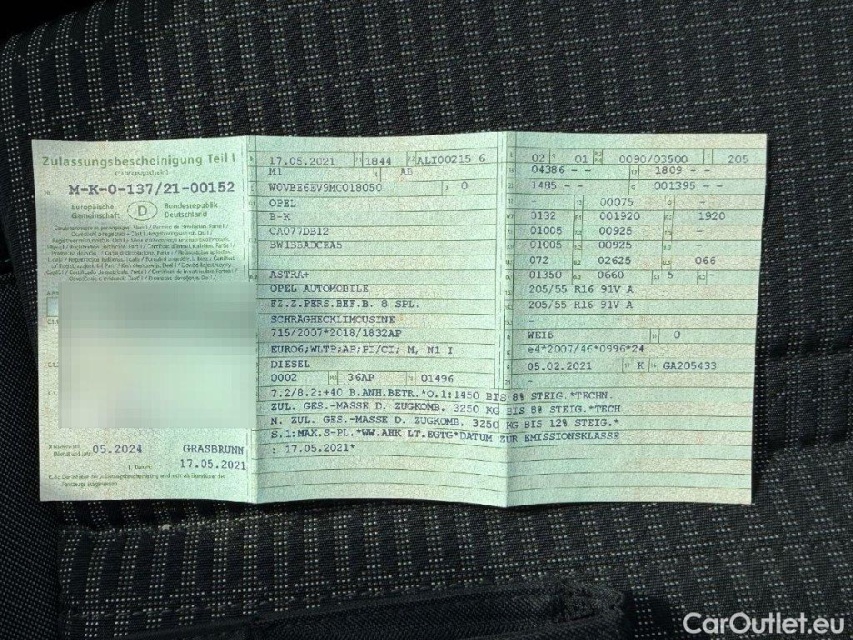 Zulassungsbescheinigung Teil I
M-K-0-137/21-00152
Europäische Gemeinschaft
D
Bundesrepublik Deutschland
05.2024
GRASBRUNN
17.05.2021
17.05.2021 1844 ALI00215 6
M1 AB
W0VBE6EV9MC018050 0
OPEL
B-K
CA077DB12
BW1SBADCEA5
ASTRA+
OPEL AUTOMOBILE
FZ.Z.PERS.BEF.B. 8 SPL.
SCHRÄGHECKLIMOUSINE
715/2007*2018/1832AP
EURO6;WLTP;AP;PI/CI; M, N1 I
DIESEL
0002 36AP 01496
7.2/8.2:+40 B.ANH.BETR.*O.1:1450 BIS 8% STEIG.*TECHN.
ZUL. GES.-MASSE D. ZUGKOMB. 3250 KG BIS 8% STEIG.*TECH
N. ZUL. GES.-MASSE D. ZUGKOMB. 3250 KG BIS 12% STEIG.*
S.1:MAX.S-PL.*WW.AHK LT.EGTG*DATUM ZUR EMISSIONSKLASSE
: 17.05.2021*
02 01 0090/03500 205
04386 - - 1809 - -
1485 - - 001395 - -
- 00075 -
0132 001920 1920
01005 00925 -
01005 00925 -
072 02625 066
01350 0660 5 -
205/55 R16 91V A
205/55 R16 91V A
-
WEIß 0
e4*2007/46*0996*24
05.02.2021 K GA205433
-
CarOutlet.eu